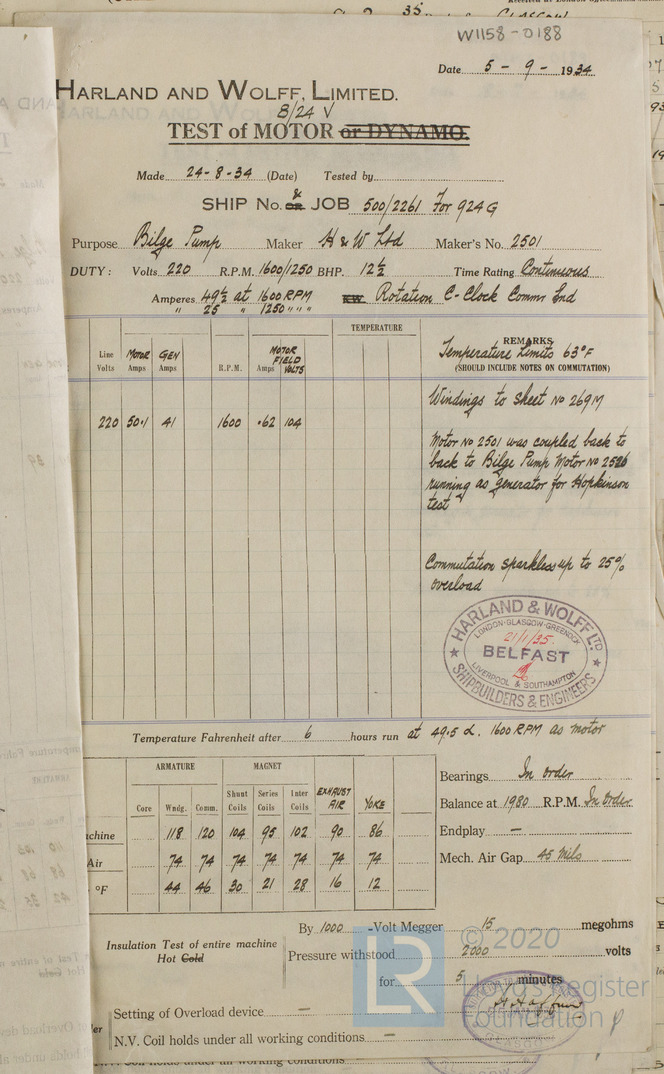 W1158-0188
Date 5 - 9 - 1934
HARLAND AND WOLFF, LIMITED.
B/24 V
TEST of MOTOR or DYNAMO.
Made 24-8-34 (Date) Tested by
SHIP No. & or JOB 500/2261 For 924G
Purpose Bilge Pump Maker H & W Ltd Maker's No. 2501
DUTY: Volts 220 R.P.M. 1600/1250 BHP. 12½ Time Rating Continuous
Amperes 49½ at 1600 RPM KW Rotation C-Clock Comms End
" 25 " 1250 " " "
TEMPERATURE
REMARKS
Temperature Limits 63°F
(SHOULD INCLUDE NOTES ON COMMUTATION)
Line Volts MOTOR Amps GEN Amps R.P.M. MOTOR FIELD Amps VOLTS
Windings to sheet No 269M
220 50·1 41 1600 ·62 104
Motor No 2501 was coupled back to
back to Bilge Pump Motor No 2526
running as generator for Hopkinson
test
Commutation sparkless up to 25%
overload
HARLAND & WOLFF LTD
LONDON-GLASGOW-GREENOCK
21/1/35.
BELFAST
LIVERPOOL & SOUTHAMPTON
SHIPBUILDERS & ENGINEERS
Temperature Fahrenheit after 6 hours run at 49·5 a. 1600 RPM as motor
ARMATURE MAGNET
Core Wndg. Comm. Shunt Coils Series Coils Inter Coils EXHAUST AIR YOKE
chine 118 120 104 95 102 90 86
Air 74 74 74 74 74 74 74
°F 44 46 30 21 28 16 12
Bearings In order
Balance at 1980 R.P.M. In Order
Endplay —
Mech. Air Gap 45 Mils
By 1000 -Volt Megger 15 megohms
Insulation Test of entire machine
Hot Cold
Pressure withstood 2000 volts
for 5 minutes
Setting of Overload device —
N.V. Coil holds under all working conditions —
LR © 2020
Lloyd's Register
Foundation